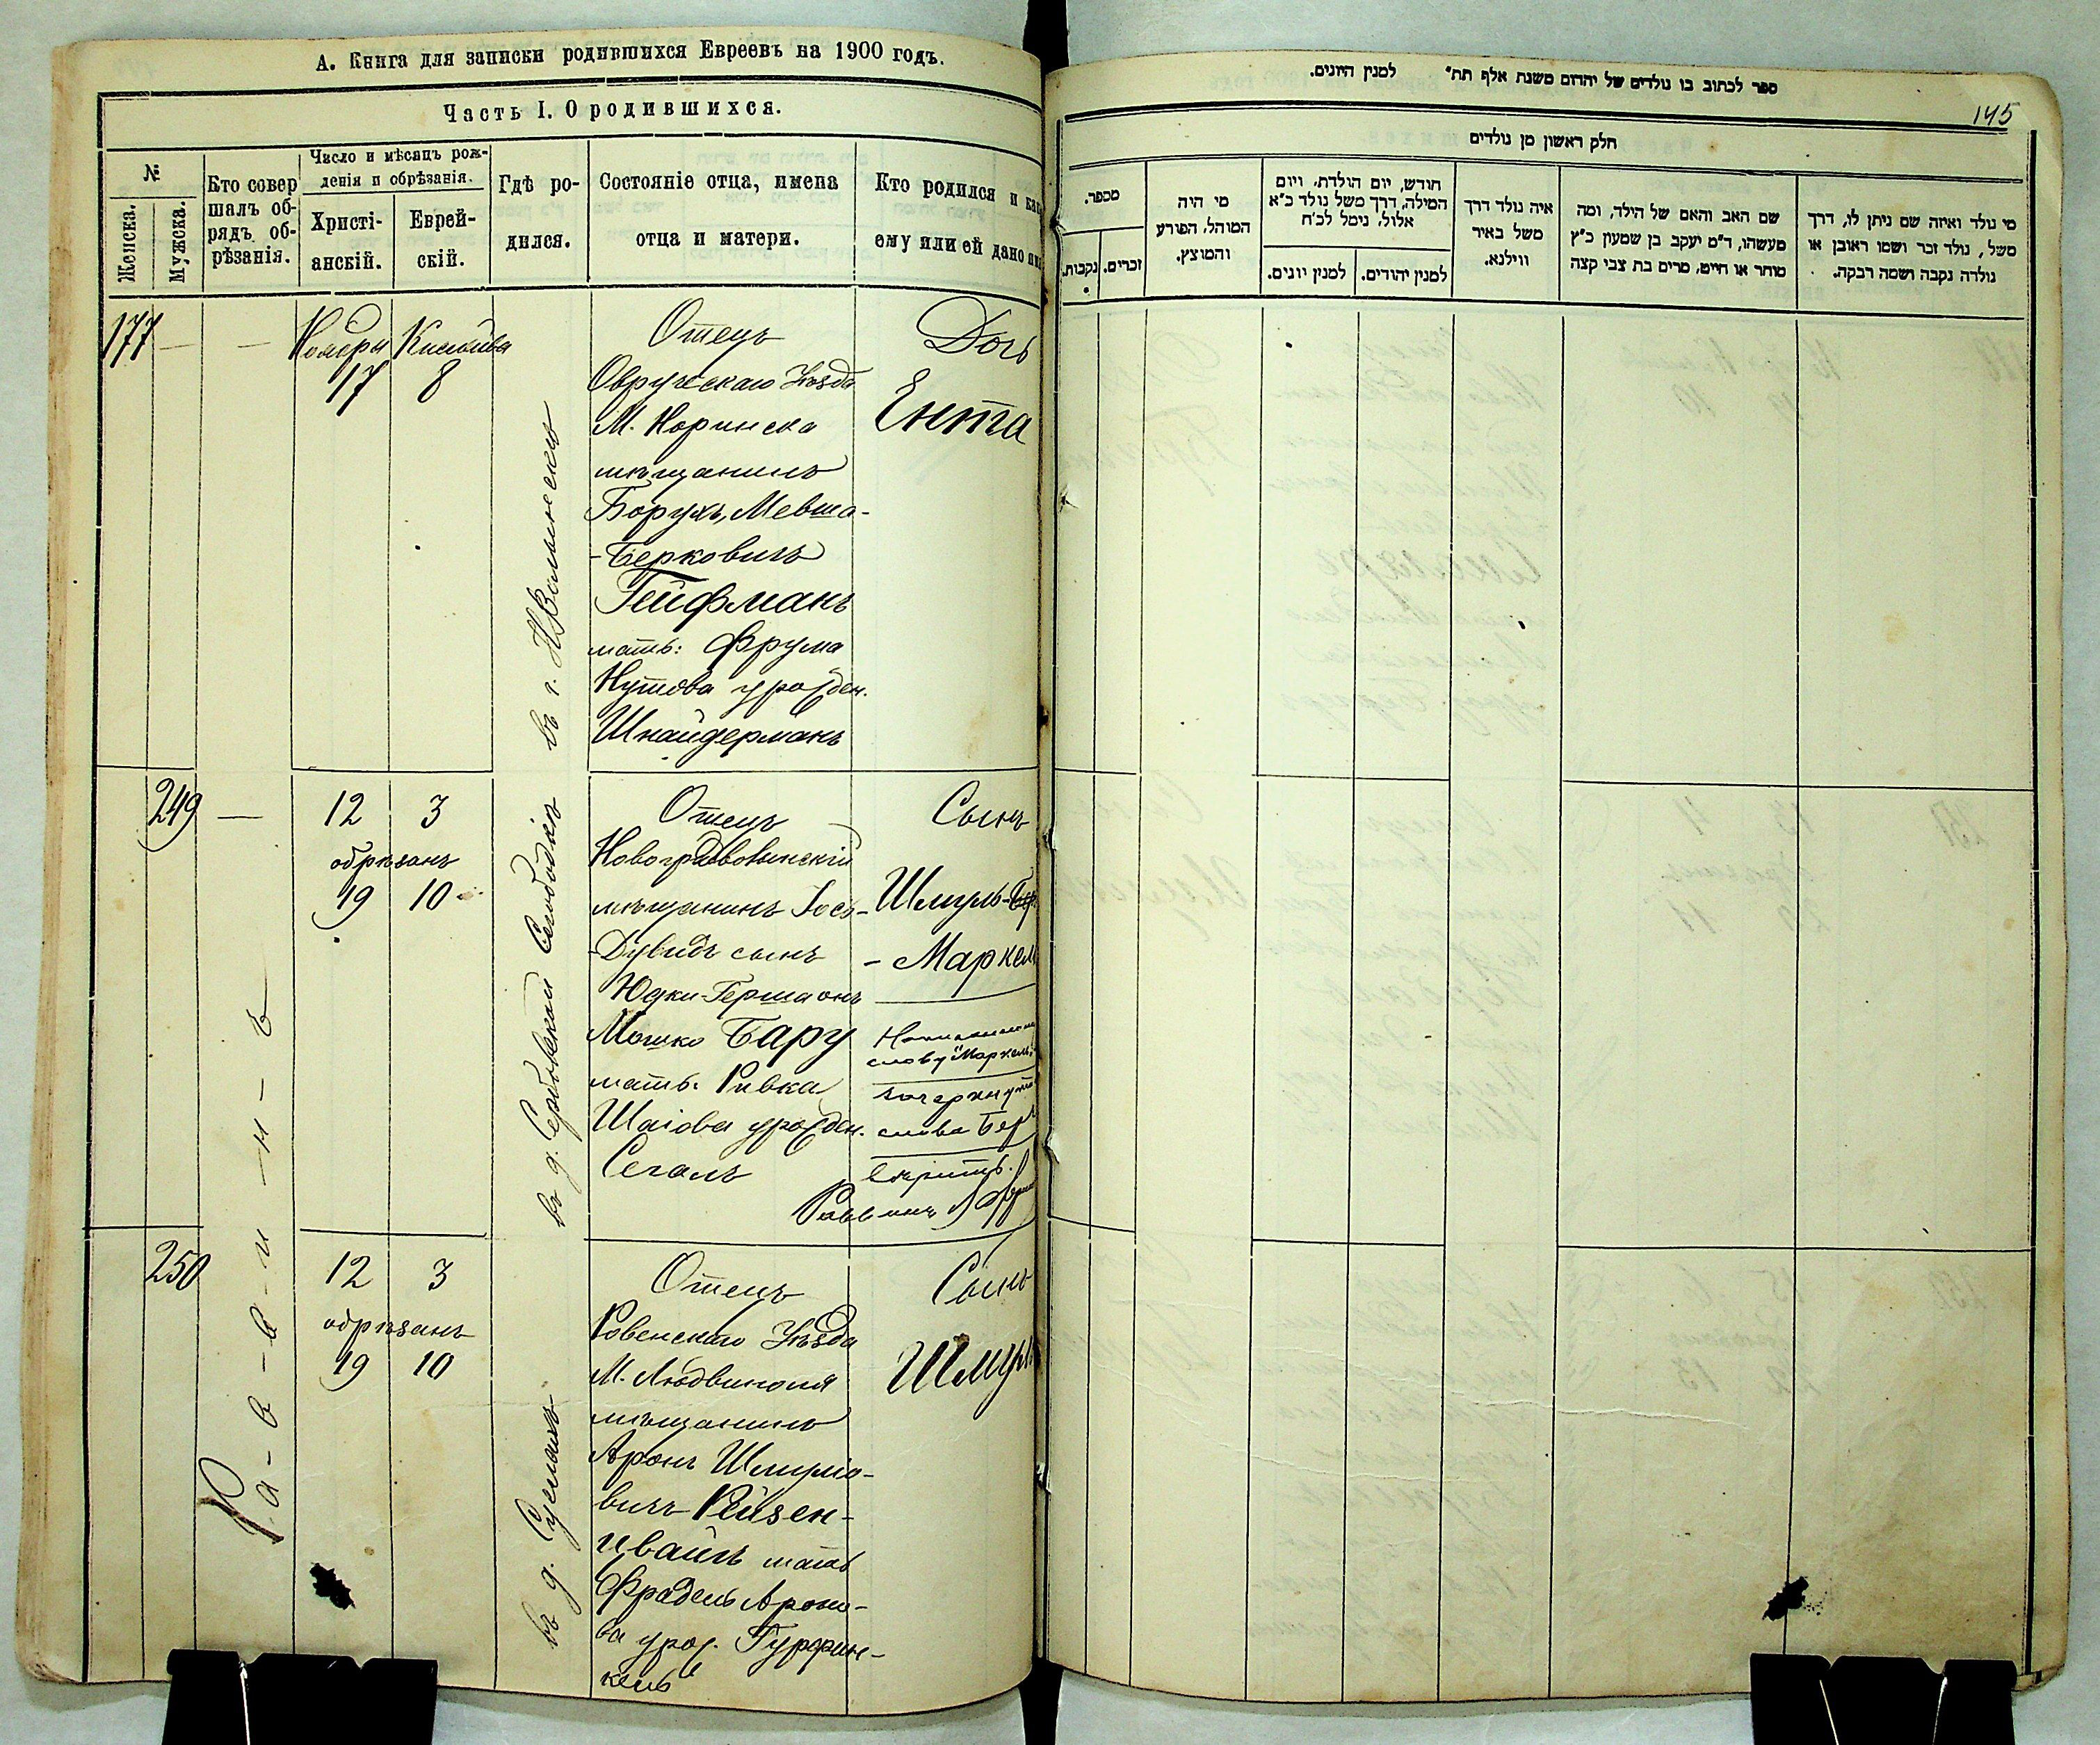 А. Книга для записки родившихся Евреевъ на 1900 годъ.
Часть I. О родившихся.
№
Женска.
Мужска.
Кто совер
шалъ об-
рядъ об-
рѣзанія.
Число и мѣсяцъ рож-
денія и обрѣзанія.
Христі-
анскій.
Еврей-
скій.
Гдѣ ро-
дился.
Состояніе отца, имена
отца и матери.
Кто родился и как
ему или ей дано им
177 — —
Ноября Кислива
17 8
въ г. НВолынскѣ
Отецъ
Овручскаго Уѣзда
М. Норинска
мѣщанинъ
Борухъ, Мевша-
-Берковичъ
Гейфманъ
мать: Фрума
Нутова урожден.
Шнайдерманъ
Дочь
Ента
249 —
12 3
обрѣзанъ
19 10
въ д. Сербовской Слободкѣ
Отецъ
Новоградволынскій
мѣщанинъ Іось-
-Дувидъ сынъ
Юдки-Герша онъ
Мошко Бару
мать: Ривка
Шаіова урожден.
Сегалъ
Сынъ
Шмуль-Бер
-Маркель
слову "Маркель"
зачеркнуто
слова Бер
вѣрить.
Раввинъ
250
12 3
обрѣзанъ
19 10
въ д.
Отецъ
Ровенскаго Уѣзда
М. Людвиполя
мѣщанинъ
Аронъ Шмуліо-
вичъ Рейзен-
цвайгъ мать
Фрадель Ароно-
ва урож. Гурфин-
кель
Сынъ
Шмуль
Р-а-в-в-и-н-ъ
ספר לכתוב בו נולדים של יהדום משנת אלף תת״ למנין היונים.
145
חלק ראשון מן נולדים
מספר.
נקבות.
זכרים.
מי היה
המוהל, הפורע
והמוצץ.
חודש, יום הולדת, ויום
המילה, דרך משל נולד כ״א
אלול, נימל לכ״ח
למנין יונים.
למנין יהודים.
איה נולד דרך
משל באיר
ווילנא.
שם האב והאם של הילד, ומה
מעשהו, ד״מ יעקב בן שמעון כ״ץ
סוחר או חייט, מרים בת צבי קצה
מי נולד ואיזה שם ניתן לו, דרך
משל, נולד זכר ושמו ראובן או
נולדה נקבה ושמה רבקה.